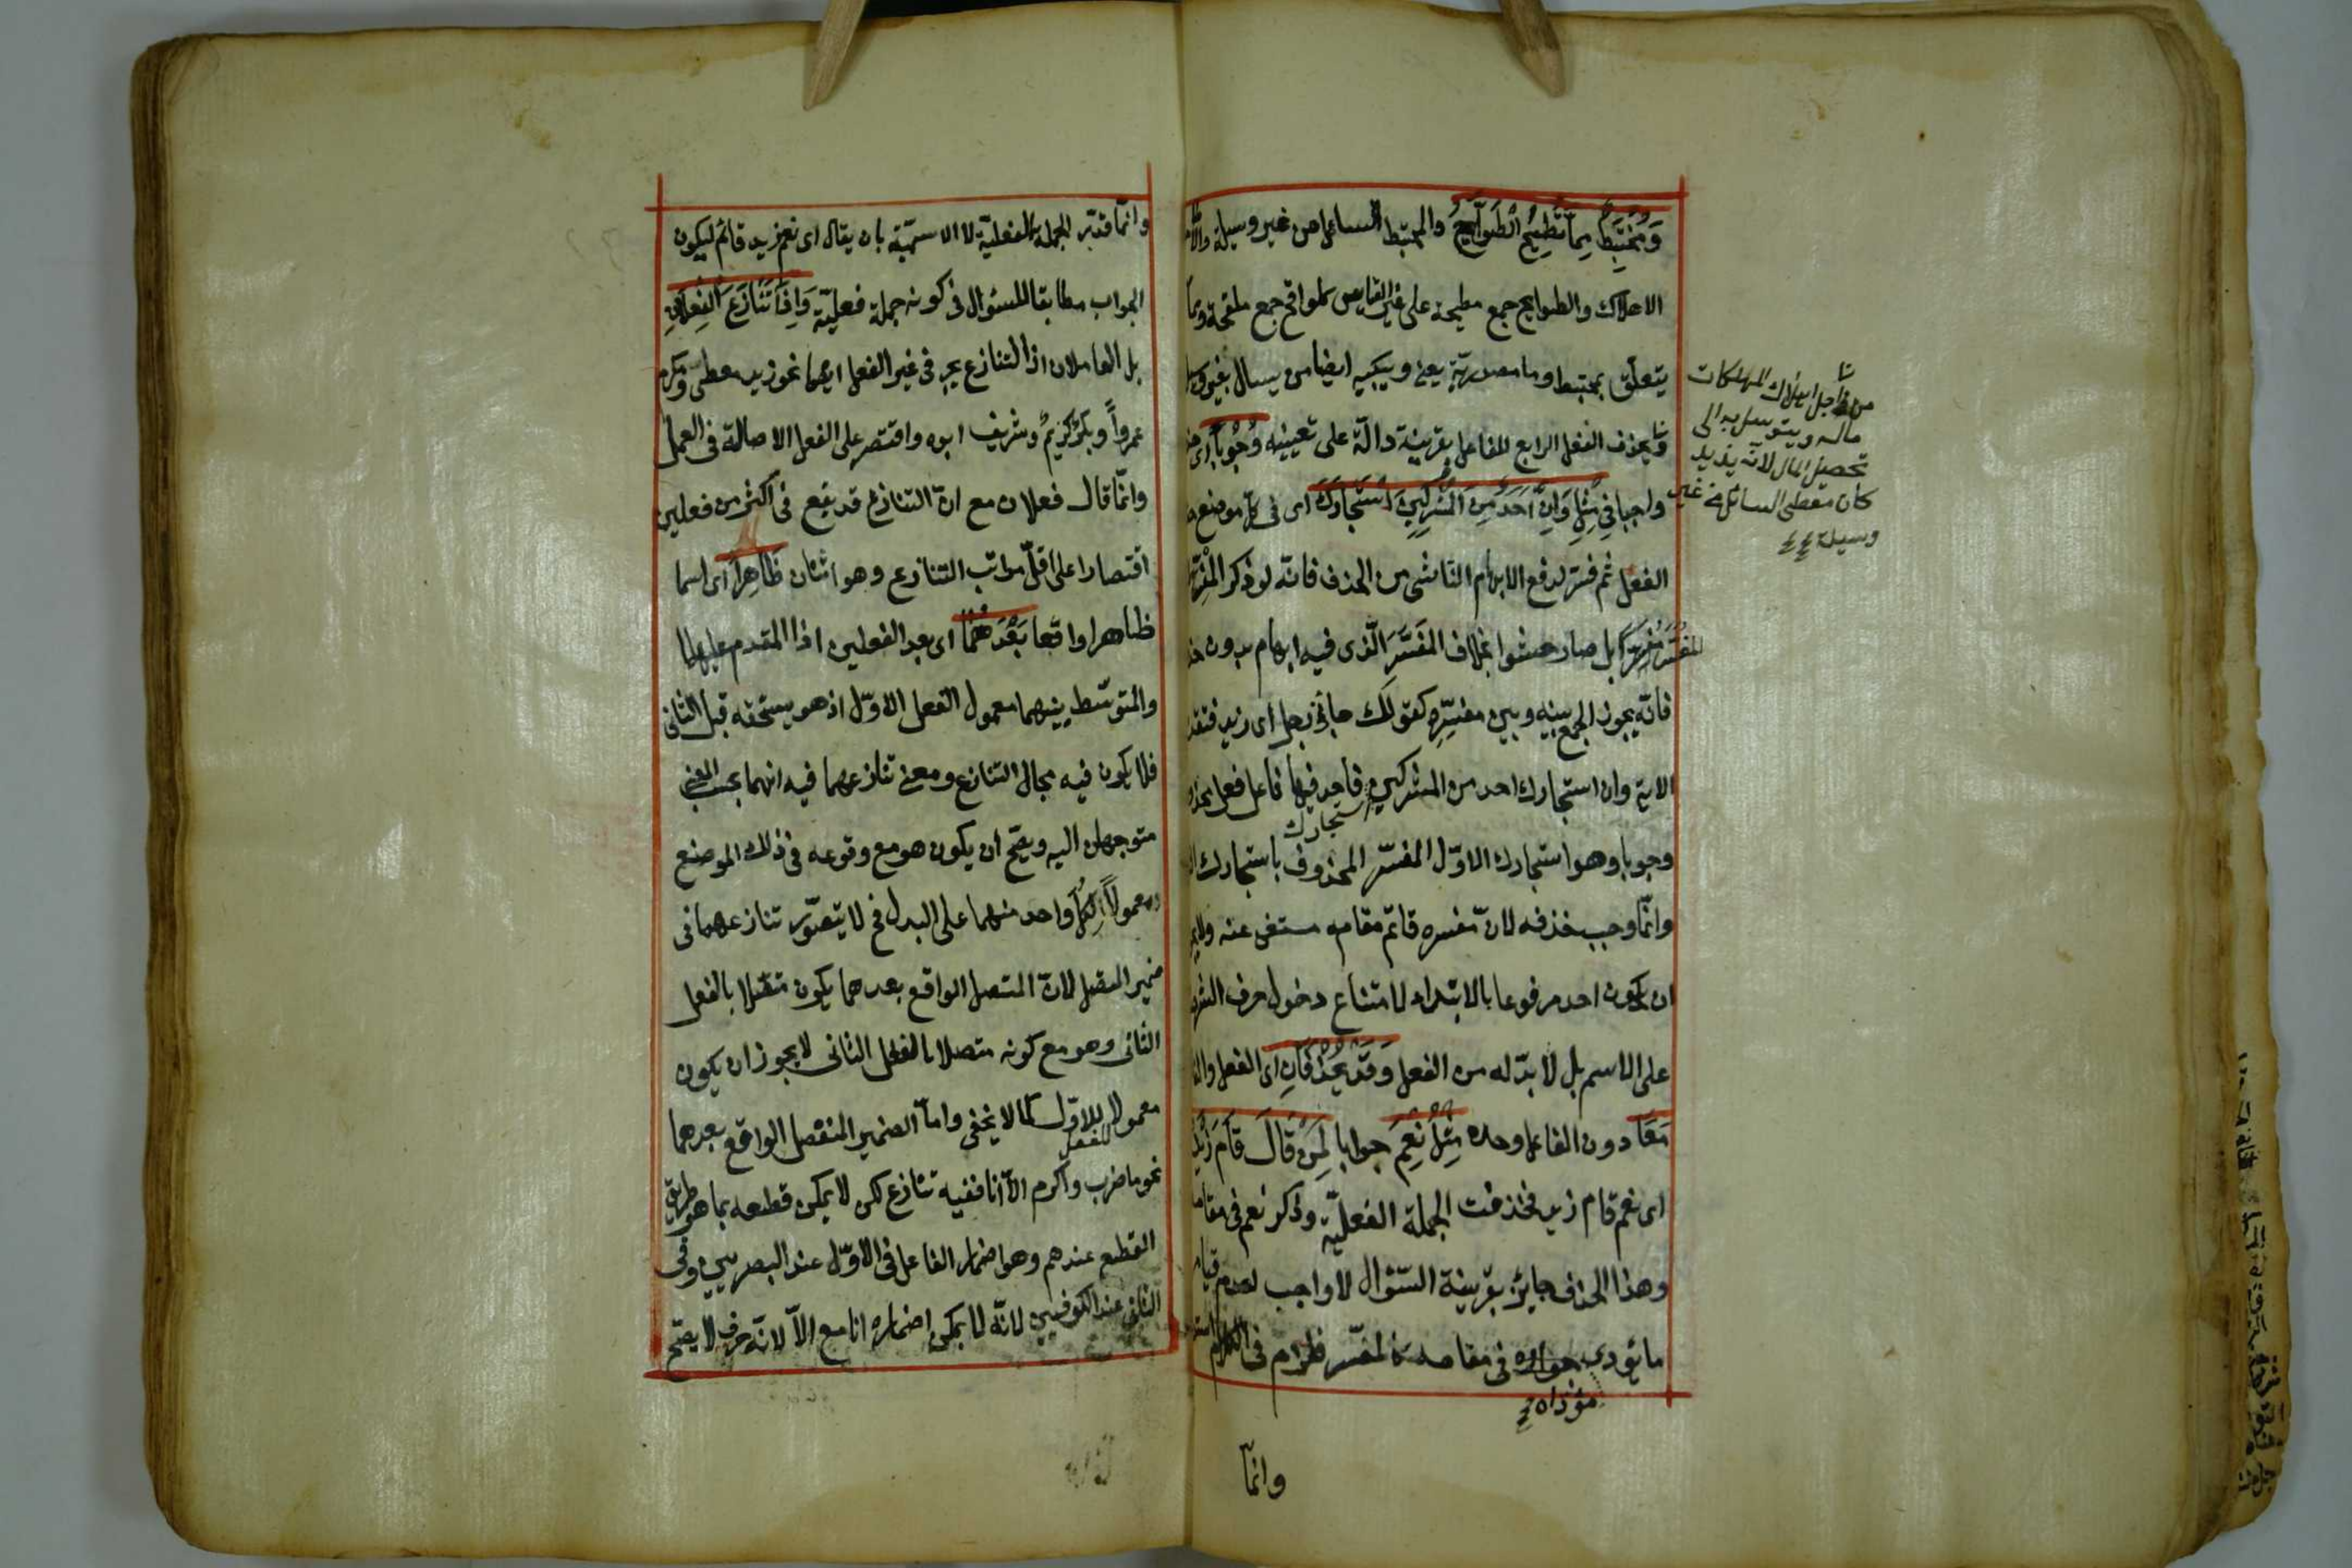 وَمُخْتَبِطٌ مِمَّا تُطِيحُ الطَّوَايحُ والمختبط السائل من غير وسيلة والاطاحة
الاهلاك والطوايح جمع مطيحة على غير القياس كلواقح جمع ملقحة ومما
يتعلق بمختبط وما مصدرية يعنى ويبكيه ايضا من يسال بغير وسيلة
وقد يحذف الفعل الرابع للفاعل بقرينة دالّة على تعيينه وُجُوباً اى حذفا
واجبا فِي مِثْلِ وَاِنْ اَحَدٌ مِنَ الْمُشْرِكِينَ اسْتَجَارَكَ اى فى كل موضع حذف
الفعل ثم فسّر لدفع الابهام الناشى من الحذف فانّه لو ذكر المُفَسَّر
المُفَسِّرُ مُفَسِّراً بل صار حشوا بخلاف المُفَسَّرِ الّذى فيه ابهام بدون حذف
فانّه يجوز الجمع بينه وبين مفسّره كقولك جاءنى رجل اى زيد فتقدير
الاية وان استجارك احد من المشركين استجارك فاحد فيها فاعل فعل محذوف
وجوبا وهو استجارك الاوّل المفسّر المحذوف باستجارك
وانّما وجب حذفه لانّ مفسره قائم مقامه مستغن عنه ولا يجوز
ان يكون احد مرفوعا بالابتداء لامتناع دخول حرف الشرط
على الاسم بل لا بدّ له من الفعل وَقَدْ يُحْذَفَانِ اى الفعل والفاعل
مَعًا دون الفاعل وحده مِثْلُ نَعَمْ جوابا لِمَنْ قَالَ قَامَ زَيْدٌ
اى نعم قام زيد فحذفت الجملة الفعليّة وذكر نعم فى مقامها
وهذا الحذف جايز بقرينة السّؤال لا واجب لعدم قيام
ما يؤدى مؤداه فى مقامه كالمفسّر فلزم فى الكلام
وانّما
من اجل اهلاك المهلكات
ماله ويتوسل به الى
تحصيل المال لانّه
كان معطى السائلين من غير
وسيلة
وانّما قدّر الجملة الفعليّة لا الاسميّة بان يقال اى نعم زيد قائم ليكون
الجواب مطابقا للسئوال فى كونه جملة فعليّة وَاِذَا تَنَازَعَ الْفِعْلَانِ
بل العاملان اذ التنازع يجرى فى غير الفعل ايضا نحو زيد معطى ومكرم
عمرواً وبكرٌ كريمٌ وشريف ابوه واقتصر على الفعل لاصالة فى العمل
وانّما قال فعلان مع انّ التنازع قد يقع فى اكثر من فعلين
اقتصارا على اقلّ مراتب التنازع وهو اثنان ظَاهِراً اى اسما
ظاهرا واقعا بَعْدَهُمَا اى بعد الفعلين اذا المتقدم عليهما
والمتوسّط بينهما معمول الفعل الاوّل اذ هو يستحقه قبل الثانى
فلا يكون فيه مجال التنازع ومعنى تنازعهما فيه انهما بحسب المعنى
متوجهان اليه ويصحّ ان يكون هو مع وقوعه فى ذلك الموضع
معمولاً لكلّ واحد منهما على البدل فح لا يتصوّر تنازعهما فى
ضمير المتصل لانّ المتصل الواقع بعدهما يكون متّصلا بالفعل
الثانى وهو مع كونه متصلا بالفعل الثانى لا يجوز ان يكون
معمولا للفعل الاوّل كما لا يخفى وامّا الضمير المنفصل الواقع بعدهما
نحو ما ضرب واكرم الّا انا ففيه تنازع لكن لا يمكن قطعه بما هو طريق
القطع عندهم وهو اضمار الفاعل فى الاوّل عند البصريين وفى
الثانى عند الكوفيين لانّه لا يمكن اضماره انا مع الّا لانّه حرف لا يصحّ